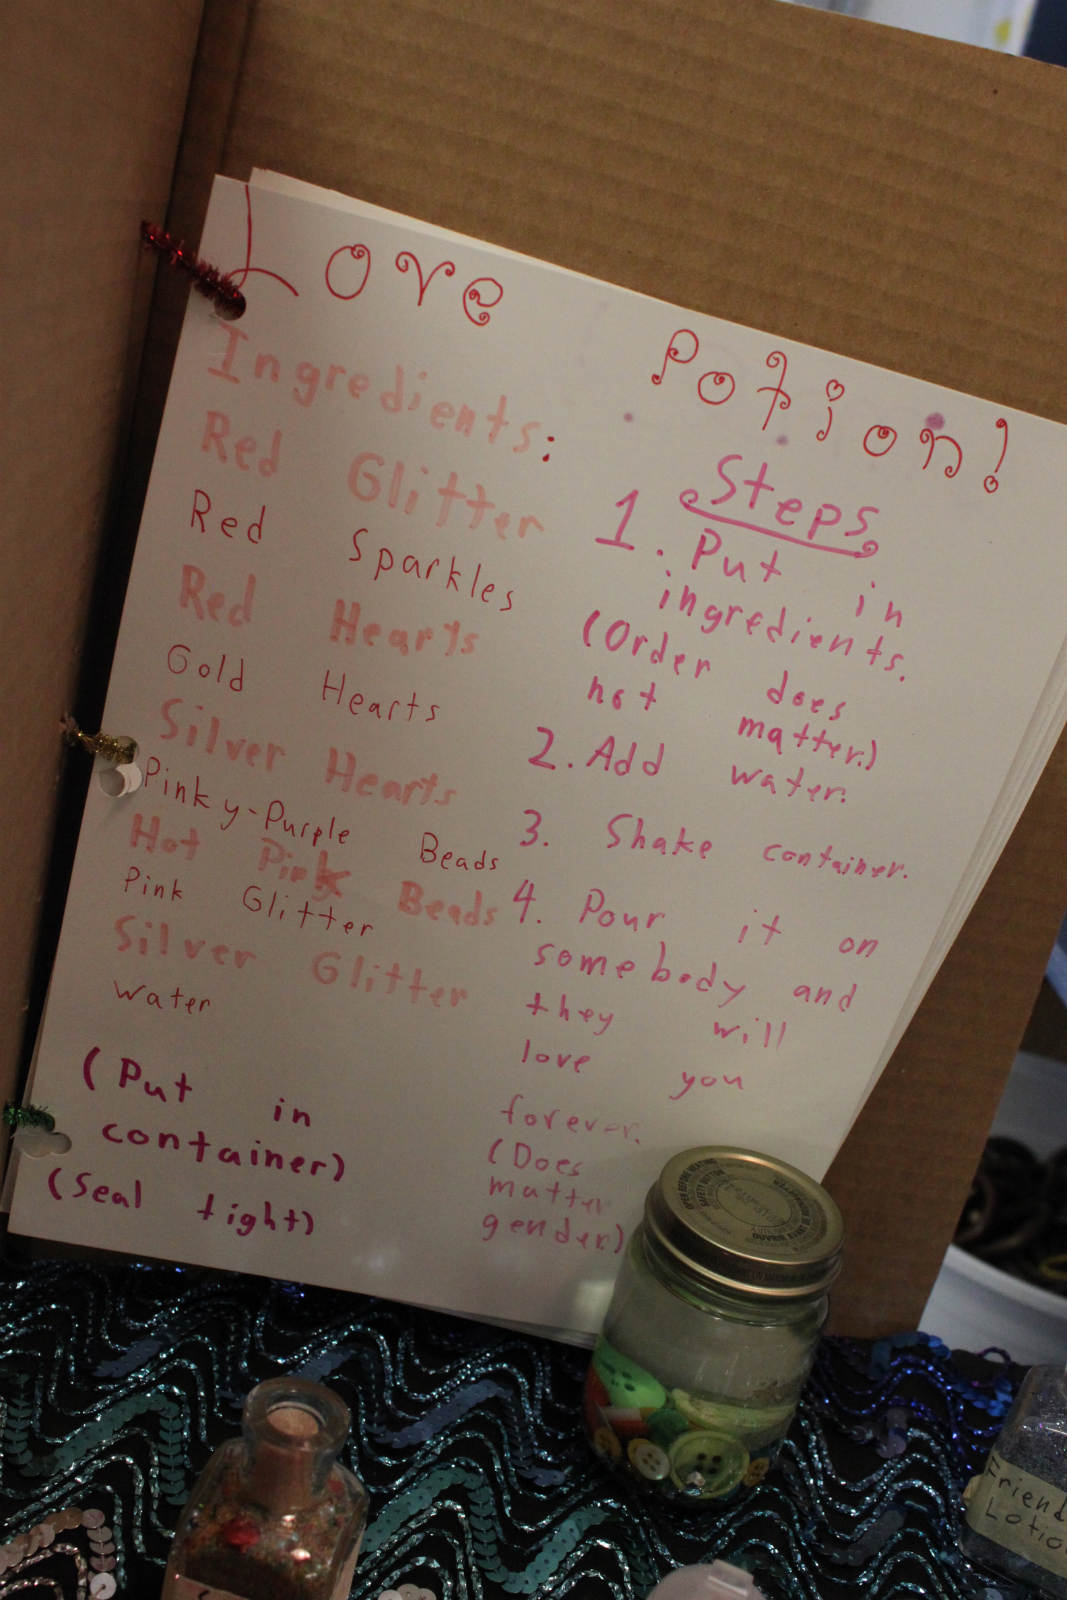 Love Potion!
Ingredients:
Red Glitter
Red Sparkles
Red Hearts
Gold Hearts
Silver Hearts
Pinky-Purple Beads
Hot Pink Beads
Pink Glitter
Silver Glitter
Water
(Put in
container)
(Seal tight)
Steps
1. Put in
ingredients.
(Order does
not matter.)
2. Add water.
3. Shake container.
4. Pour it on
somebody and
they will
love you
forever.
(Does
matter
gender.)
Friend